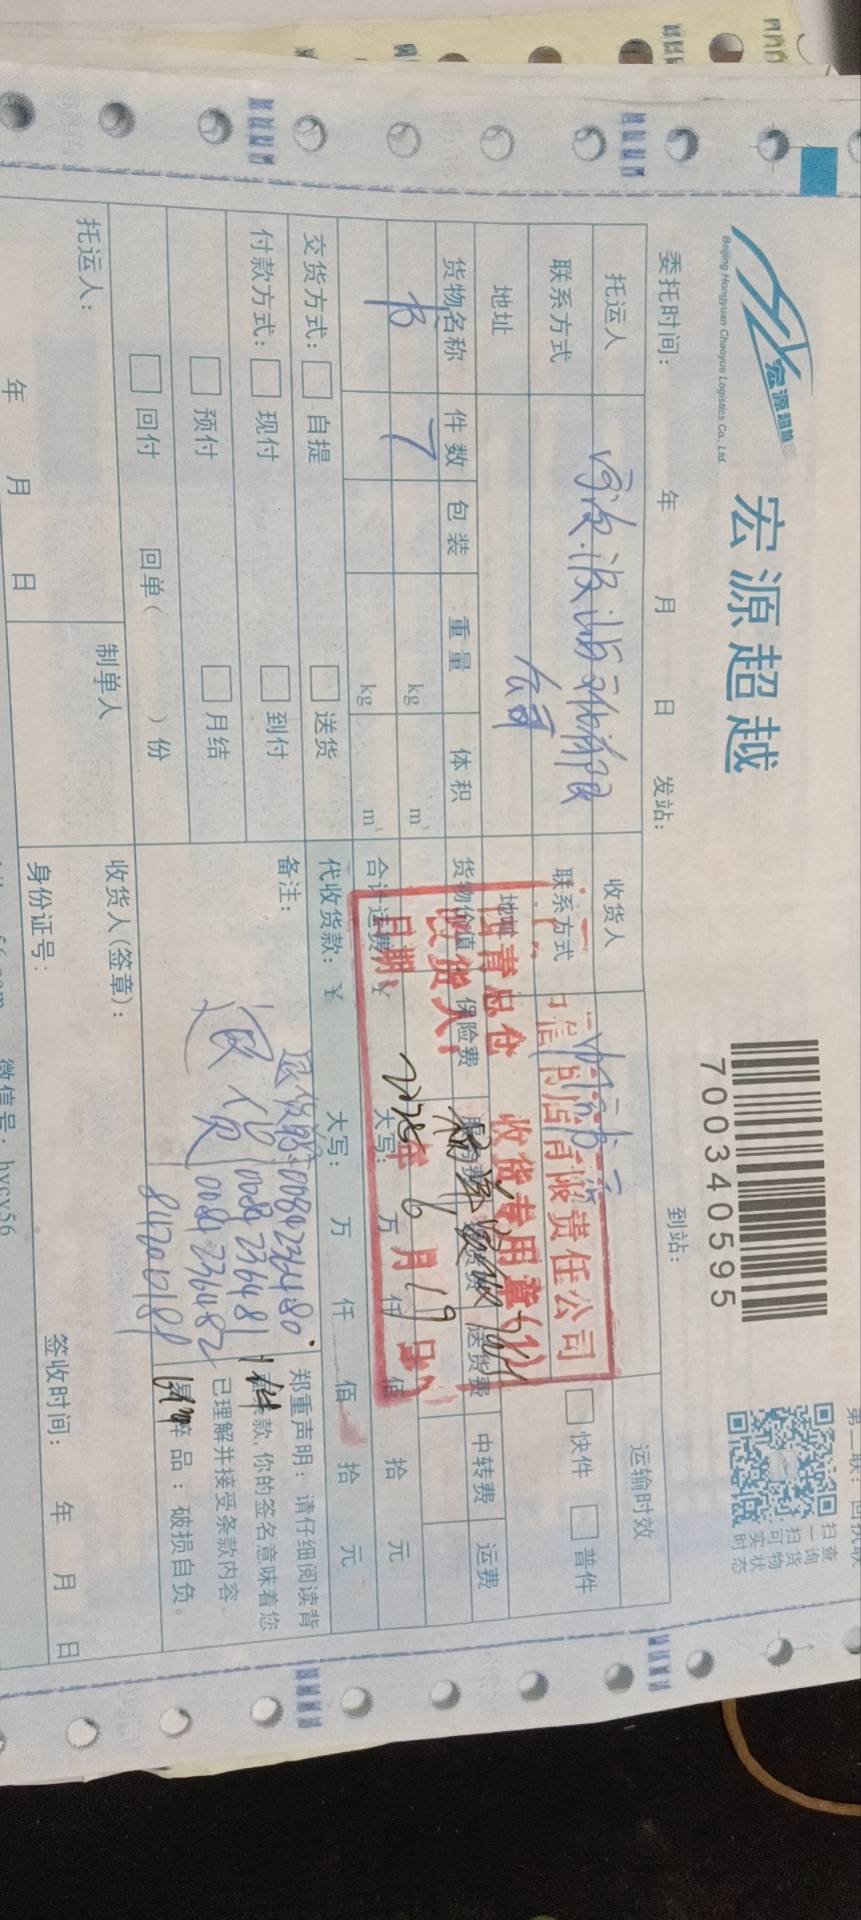 宏源超越
Beijing Hongyuan Chaoyue Logistics Co., Ltd.
宏源超越
700340595
扫一扫可实时
查询货物状态
委托时间： 年 月 日 发站： 到站：
托运人
收货人
运输时效
联系方式
公司
联系方式
快件 普件
地址
地址
货物名称 件数 包装 重量 体积 货物价值 保险费 送货费 中转费 运费
书 7 kg m³
kg m³
合计运费 ¥ 大写： 万 仟 佰 拾 元
交货方式： 自提 送货
代收货款： ¥ 大写： 万 仟 佰 拾 元
付款方式： 现付 到付
预付 月结
回付 回单（ ）份
备注：
退货
0084236480
0084236481
0084236482
郑重声明：请仔细阅读背
款，你的签名意味着您
已理解并接受条款内容。
品：破损自负。
有限责任公司
总仓 收货专用章(1)
收货人：
日期： 年 6 月 19 日
托运人：
制单人
收货人(签章)：
身份证号：
年 月 日
签收时间： 年 月 日
微信号：hycy56